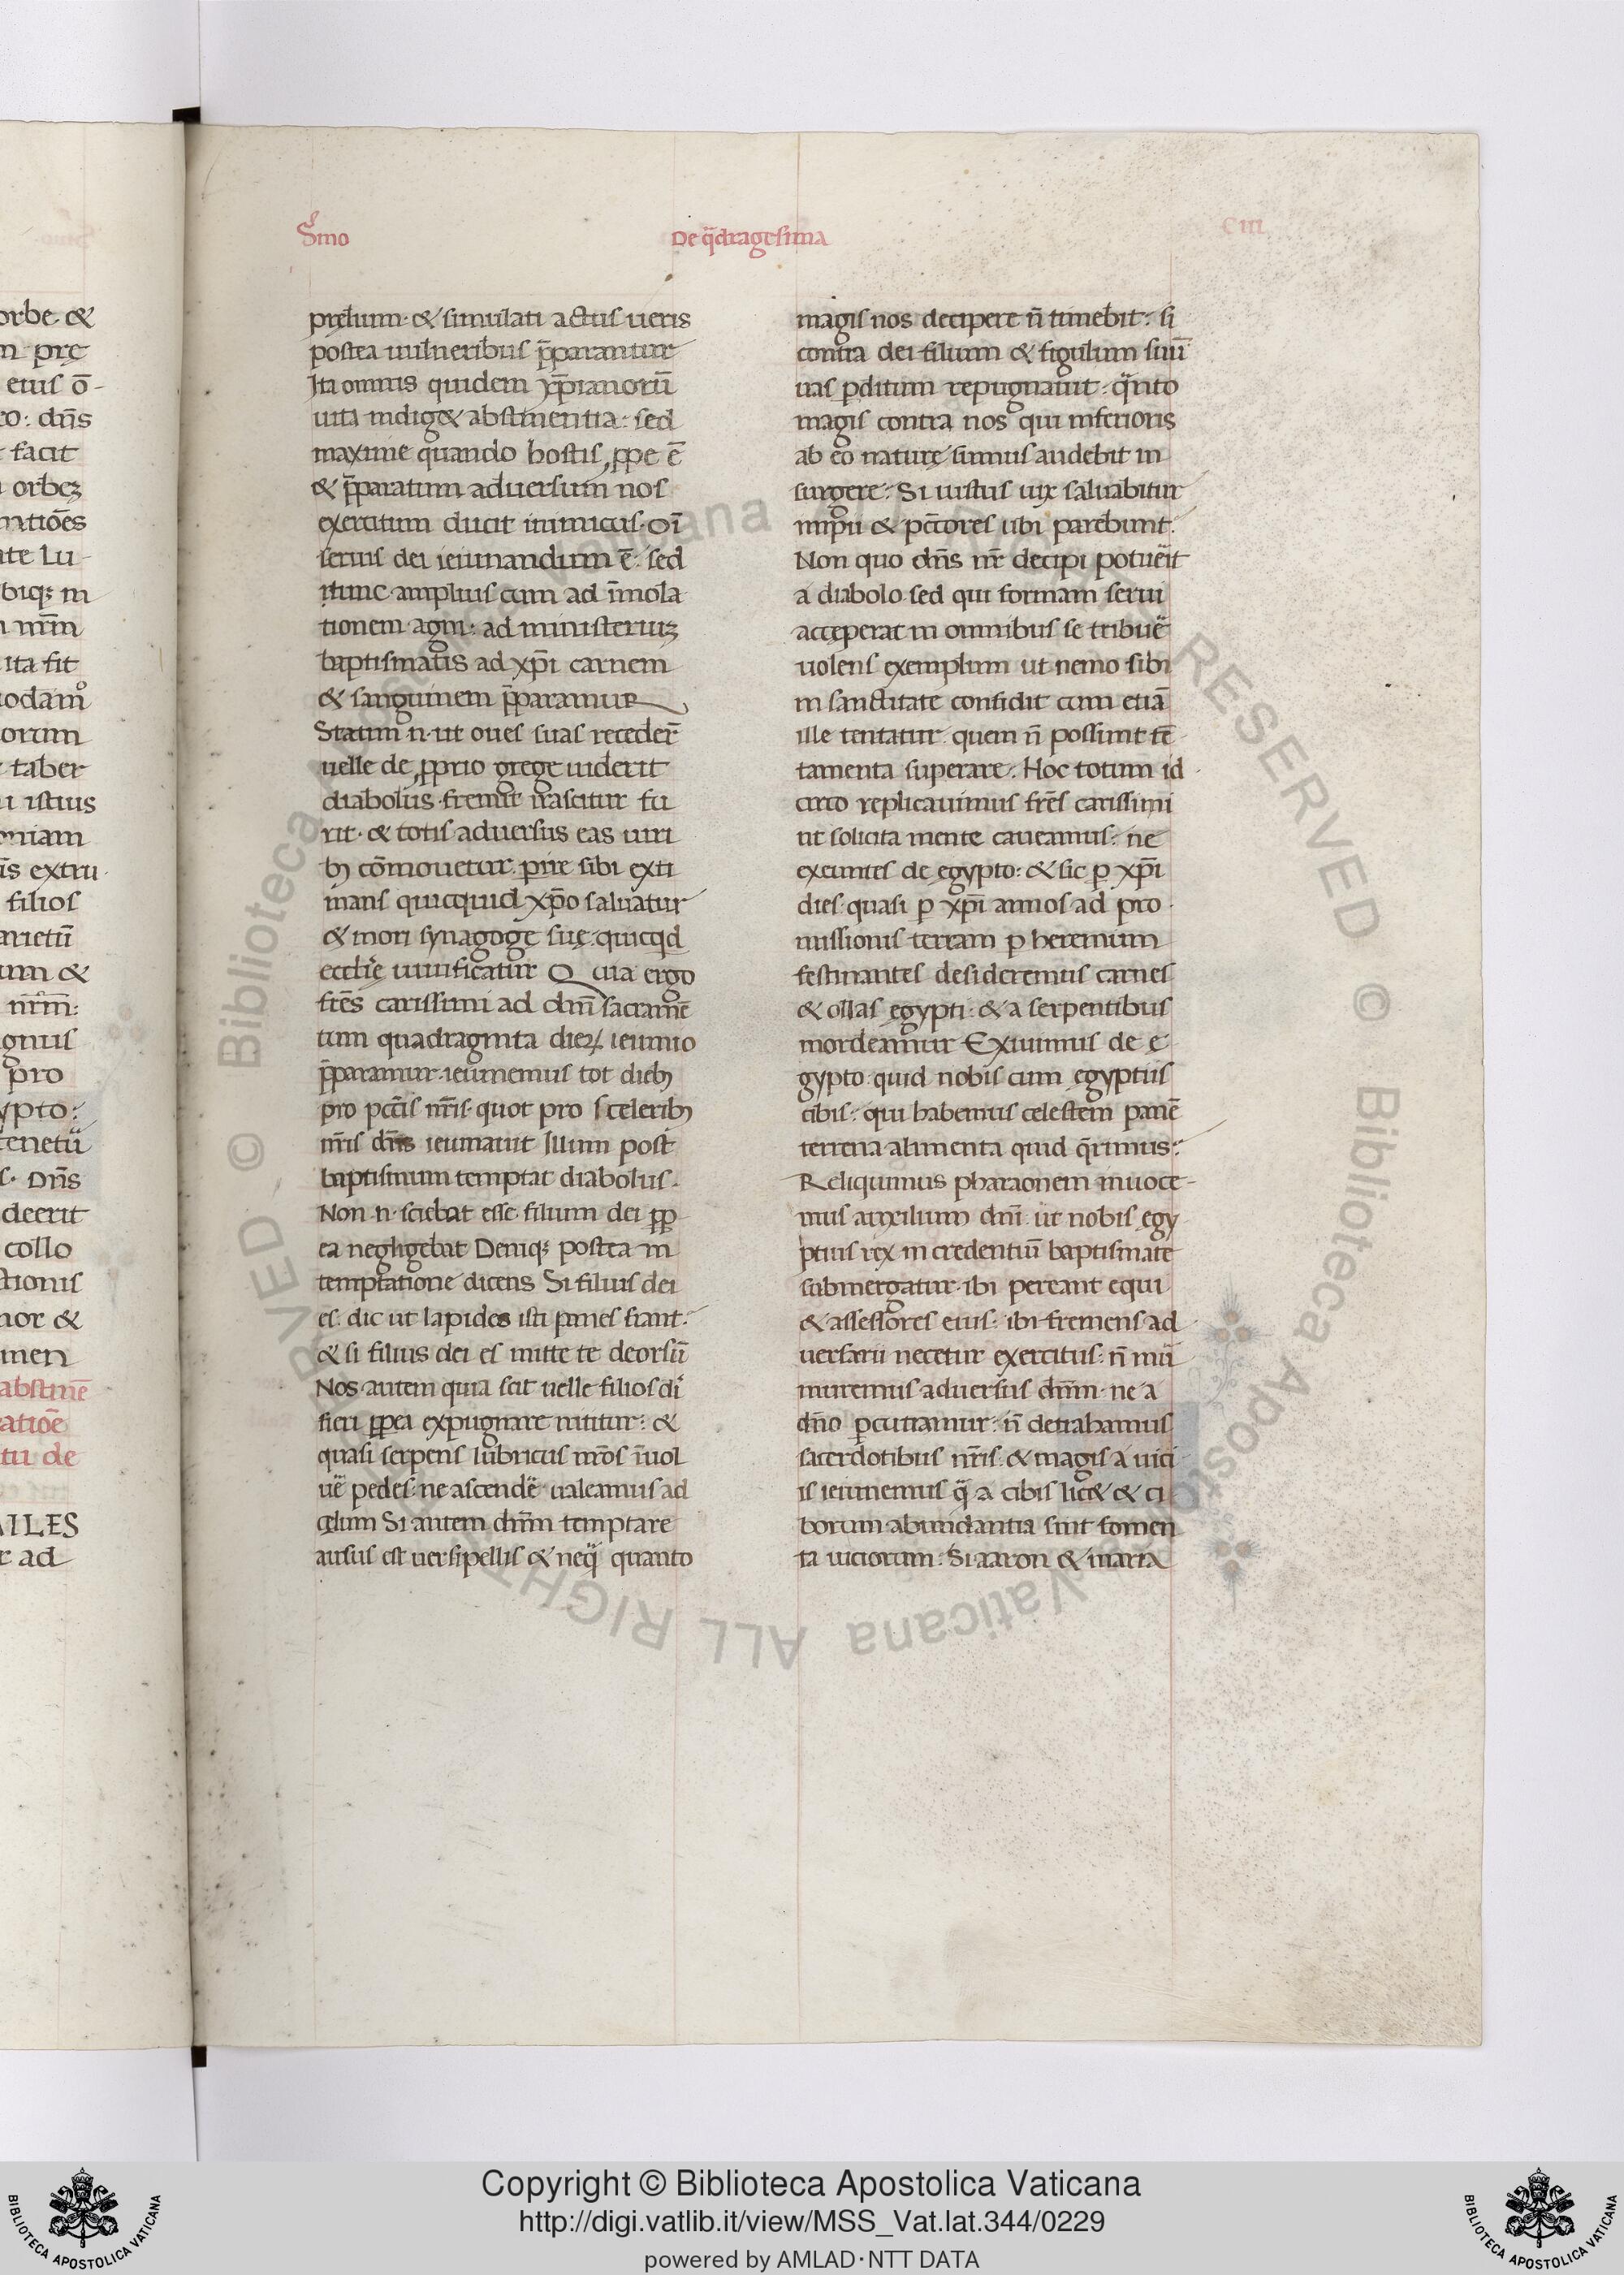 orbe. &
m prę
eius ō-
eo: dn̄s
facit
orbeʒ
natiões
te Lu-
biqʒ in
nr̄m
ita fit
uodamº
orum
taber
i istius
oniam
is extru-
filios
arietū
um &
nr̄m:
gnus
pro
ypto:
tenetū
s. Dn̄s
deerit
collo
ctionis
mor &
men
abstinē
atiõe
tu de
MILES
r ad
Sͬmo
De q̄dragesima
CIII
prelium. & simulati actus ueris
postea uulneribus p̄parantur
Ita omnis quidem xp̄ianorū
uita indig& abstinentia: sed
maxime quando hostis ꝓpe ē
& p̄paratum aduersum nos
exercitum ducit inimicus. Oī
seruis dei ieiunandum ē: sed
nunc amplius cum ad īmola
tionem agni: ad ministeriuʒ
baptismatis ad xp̄i carnem
& sanguinem p̄paramur
Statim .n. ut oues suas recederͤ
uelle de ꝓprio grege uiderit
diabolus. fremit irascitur fu
rit. & totis aduersus eas uiri
bꝫ cõmouetur. ꝑire sibi exti
mans quicquid xp̄o saluatur
& mori synagoge suę. quicqd
eccl̄ię uiuificatur Quia ergo
frēs carissimi ad dn̄i sacramē
tum quadraginta dieꝝ ieiunio
p̄paramur. ieiunemus tot diebꝫ
pro pcc̄is nr̄is. quot pro sceleribꝫ
nr̄is dn̄s ieiunauit Illum post
baptismum temptat diabolus.
Non .n. sciebat esse filium dei ꝓp
ea neghgebat Deniqʒ postea in
temptatione dicens Si filius dei
es. dic ut lapides isti panes fiant.
& si filius dei es mitte te deorsū
Nos autem quia scit uelle filios di
fieri ꝓpea expugnare nititur: &
quasi serpens lubricus nr̄os īuol
uē pedes. ne ascendē ualeamus ad
cęlum Si autem dn̄m temptare
ausus est uersipellis & neq̄ quanto
magis nos decipere n̄ timebit: si
contra dei filium & figulum suū
uas ꝑditum repugnauit. q̄nto
magis contra nos qui inferioris
ab eo naturę sumus audebit in
surgere: Si iustus uix saluabitur
impii & pcc̄ores ubi parebunt.
Non quo dn̄s nr̄ decipi potuēit
a diabolo. sed qui formam serui
acceperat in omnibus se tribuē
uolens exemplum ut nemo sibi
in sanctitate confidit cum etiā
ille tentatur quem n̄ possint tē
tamenta superare. Hoc totum id
circo replicauimus frēs carissimi
ut solicita mente caueamus: ne
exeuntes de egypto: & sic ꝑ xp̄i
dies. quasi ꝑ xp̄i annos ad pro
missionis terram ꝑ heremum
festinantes desideremus carnes
& ollas egypti: & a serpentibus
mordeamur Exiuimus de e
gypto. quid nobis cum egyptiis
cibis: qui habemus celestem panē
terrena alimenta quid q̄rimus:
Reliquimus pharaonem inuoce-
mus auxilium dn̄i ut nobis egy
ptius rex in credentiū baptismate
submergatur. ibi pereant equi
& assessores eius: ibi fremens ad
uersarii necetur exercitus: n̄ mū
muremus aduersus dn̄m. ne a
dn̄o ꝑcutiamur: n̄ detrahamus
sacerdotibus nr̄is. & magis a uici
is ieiunemus q̄ a cibis lic& & ci
borum abundantia sint fomen
ta uiciorum. Si aaron & maria
© Biblioteca Apostolica Vaticana ALL RIGHTS RESERVED © Biblioteca Apostolica Vaticana ALL RIGHTS RESERVED
Copyright © Biblioteca Apostolica Vaticana
http://digi.vatlib.it/view/MSS_Vat.lat.344/0229
powered by AMLAD·NTT DATA
BIBLIOTECA APOSTOLICA VATICANA
BIBLIOTECA APOSTOLICA VATICANA